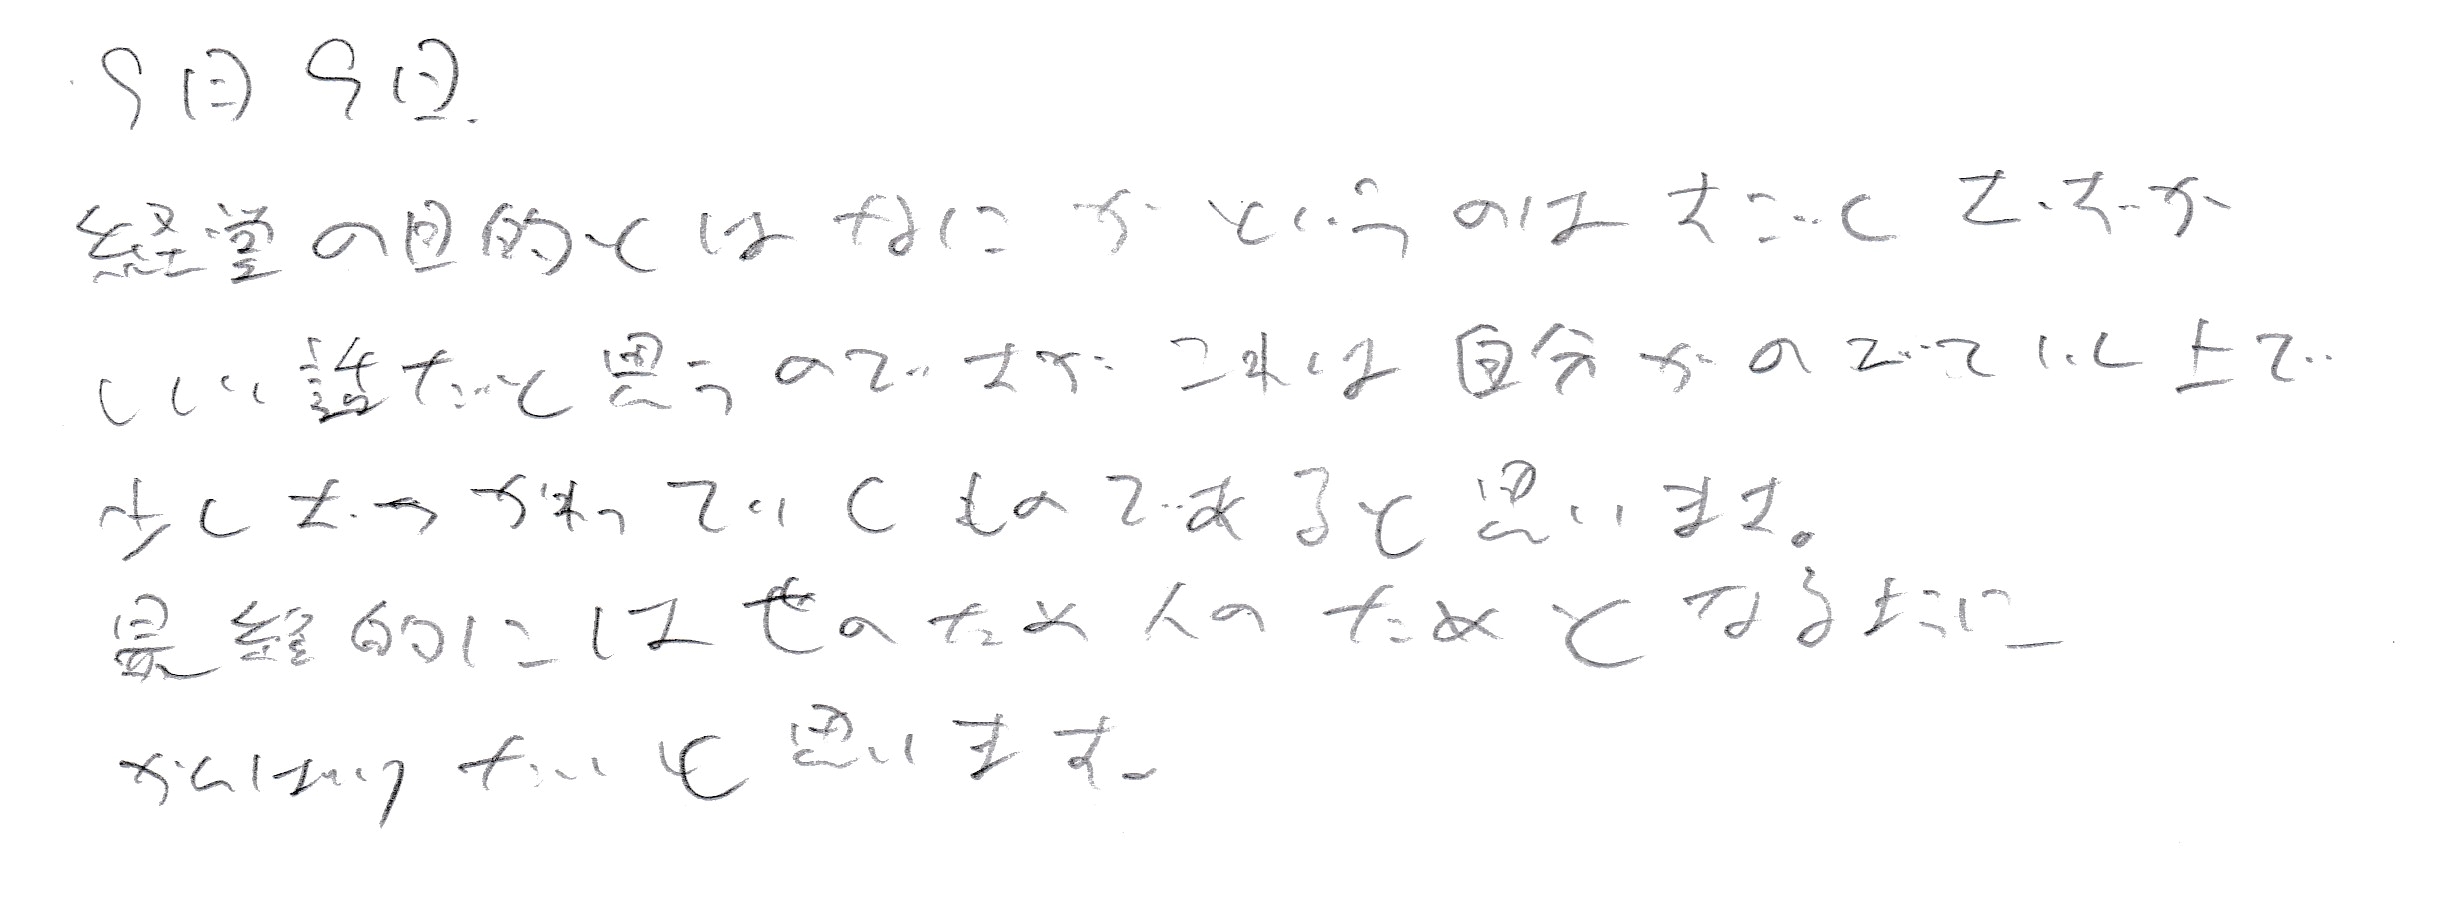 9月9日.
経営の目的とはなにかというのはすごくですが
いい話だと思うのですが これは自分がのぞていく上で
少しずつかわっていくものであると思います。
最終的には世のため人のためとなるように
がんばりたいと思います。